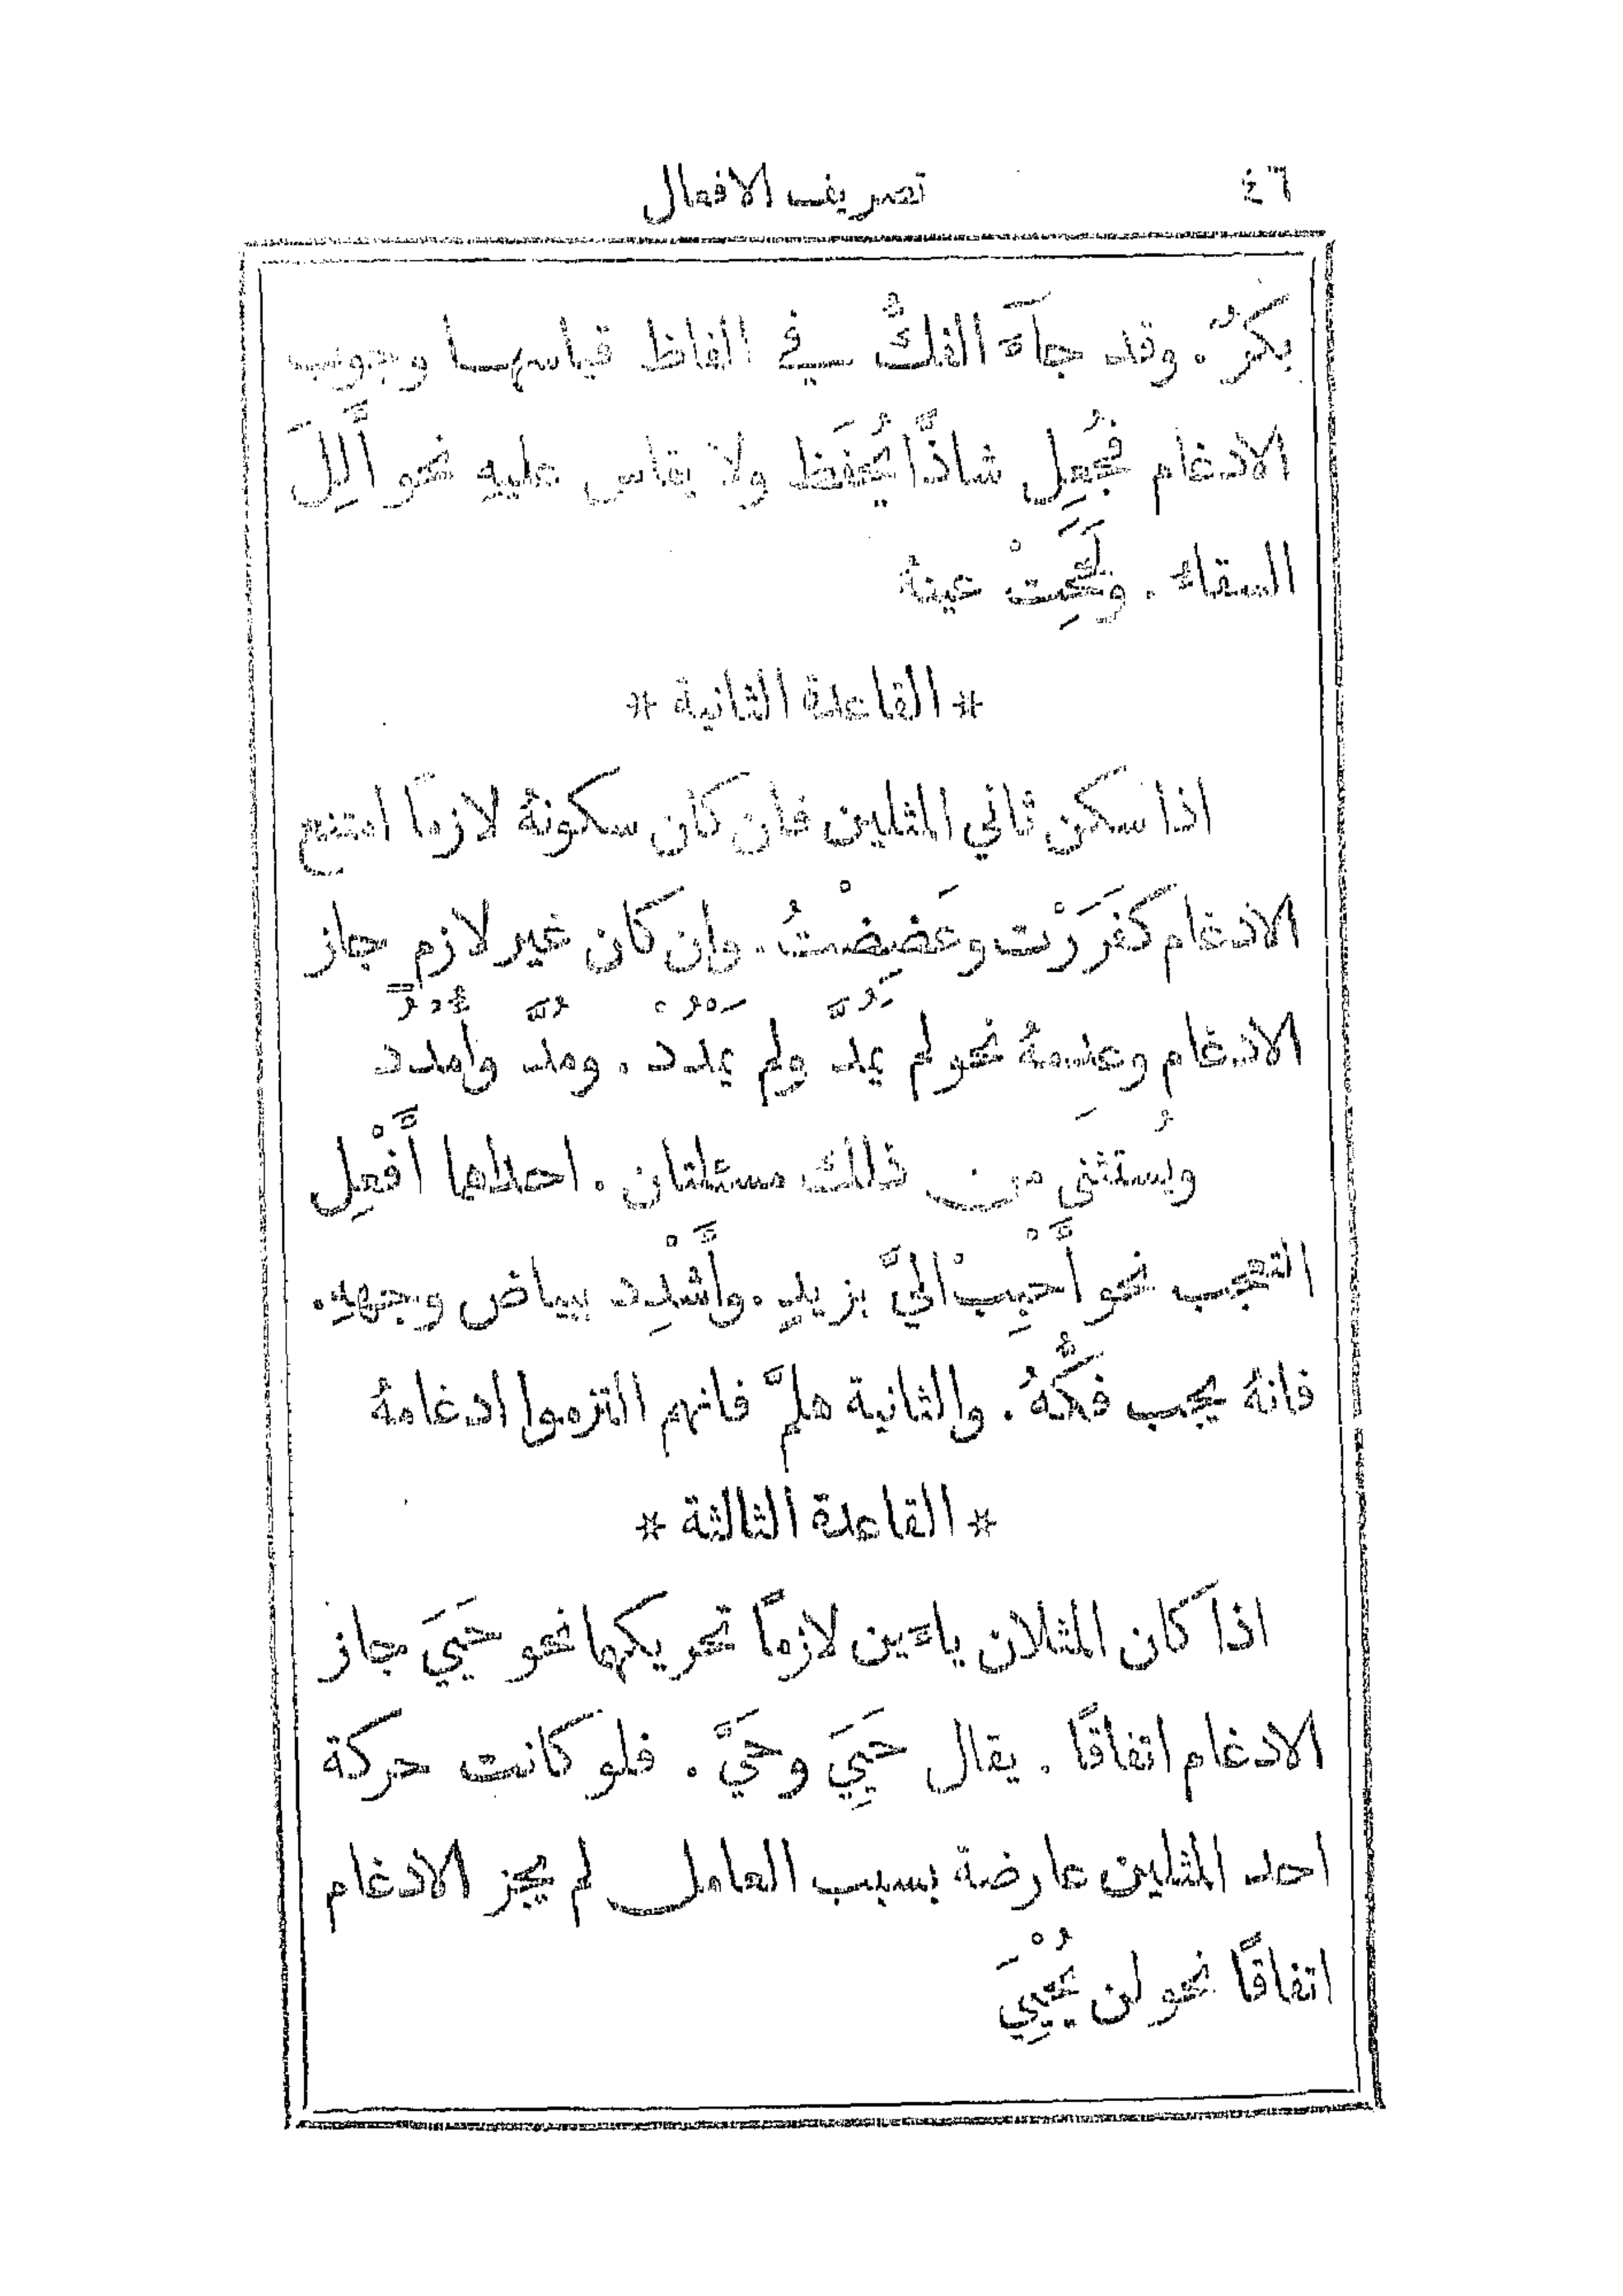 ٤٦ تصريف الافعال
بَكرٌ. وقد جآءَ الفكُّ في الفاظ قياسها وجوب
الادغام فجُعِل شاذًّا يُحفَظ ولا يقاس عليهِ نحو أَلِلَ
السقاءُ. ولَحِحَتْ عينهُ
* القاعدة الثانية *
اذا سكن ثاني المثلين فان كان سكونهُ لازمًا امتنع
الادغام كفَرَرْت وعَضِضْتُ. وإن كان غير لازم جاز
الادغام وعدمهُ نحو لم يَمُدَّ ولم يَمْدُدْ. ومُدَّ وأُمْدُدْ
ويُستثنَى من ذلك مسئلتان. احداها أَفْعِل
التعجب نحو أَحْبِبْ اليَّ بزيدٍ. وأَشْدِد ببياض وجههِ.
فانهُ يجب فكُّهُ. والثانية هلمَّ فانهم التزموا ادغامهُ
* القاعدة الثالثة *
اذا كان المثلان ياءَين لازمًا تحريكهما نحو حَيِيَ جاز
الادغام اتفاقًا. يقال حَيِيَ وحَيَّ. فلو كانت حركة
احد المثلين عارضة بسبب العامل لم يجز الادغام
اتفاقًا نحو لن يُحْيِيَ